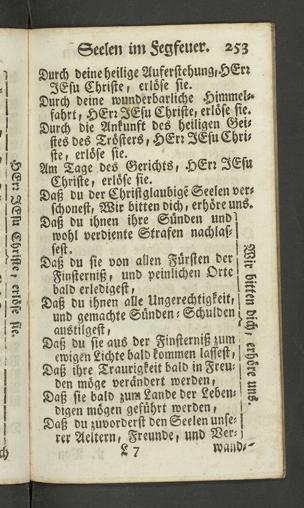 Seelen im Fegfeuer. 253
Durch deine heilige Auferstehung, HErr
JEsu Christe, erlöse sie.
Durch deine wunderbarliche Himmel-
fahrt, HErr JEsu Christe, erlöse sie.
Durch die Ankunft des heiligen Gei-
stes des Trösters, HErr JEsu Chri-
ste, erlöse sie.
Am Tage des Gerichts, HErr JEsu
Christe, erlöse sie.
Daß du der Christglaubige Seelen ver-
schonest, Wir bitten dich, erhöre uns.
Daß du ihnen ihre Sünden und
wohl verdiente Strafen nachlaß-
sest.
Daß du sie von allen Fürsten der
Finsterniß, und peinlichen Orte
bald erledigest,
Daß du ihnen alle Ungerechtigkeit,
und gemachte Sünden-Schulden
austilgest,
Daß du sie aus der Finsterniß zum
ewigen Lichte bald kommen lassest,
Daß ihre Traurigkeit bald in Freu-
den möge verändert werden,
Daß sie bald zum Lande der Leben-
digen mögen geführt werden,
Daß du zuvorderst den Seelen unse-
rer Aeltern, Freunde, und Ver-
L 7 wand-
Wir bitten dich, erhöre uns.
HErr JEsu Christe, erlöse sie.